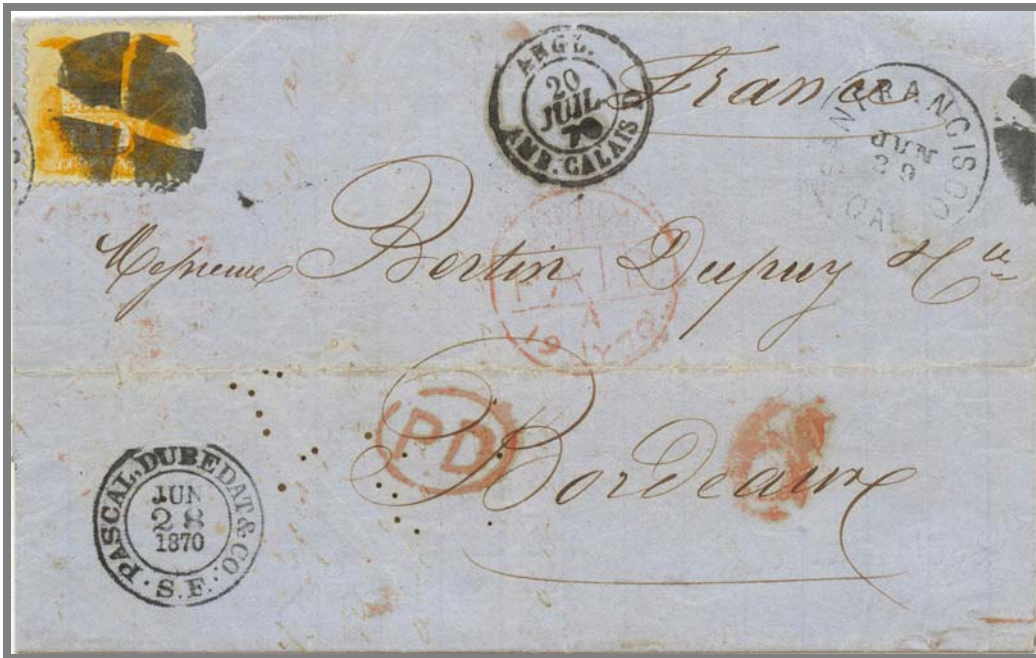 ANGL.
20
JUIL
70
AMB. CALAIS D
France
SAN FRANCISCO
JUN
29
CAL
Messieurs Bertin Dupuy & Cie
PAID
A
19 JY 70
PD
Bordeaux
PASCAL, DUBEDAT & CO.
JUN
28
1870
S.F.